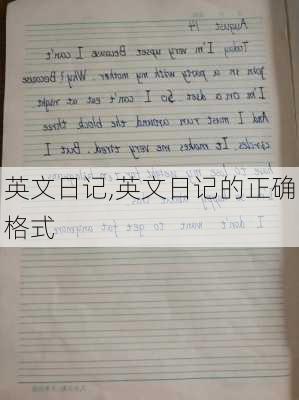 August 14
Today I'm very upset Because I can't
join in a party with my mother. Why? Because
I'm on a diet So I can't eat at night.
And I must run around the block three
circles. It makes me very tired. But I
英文日记,英文日记的正确
格式
I don't want to get fat anymore